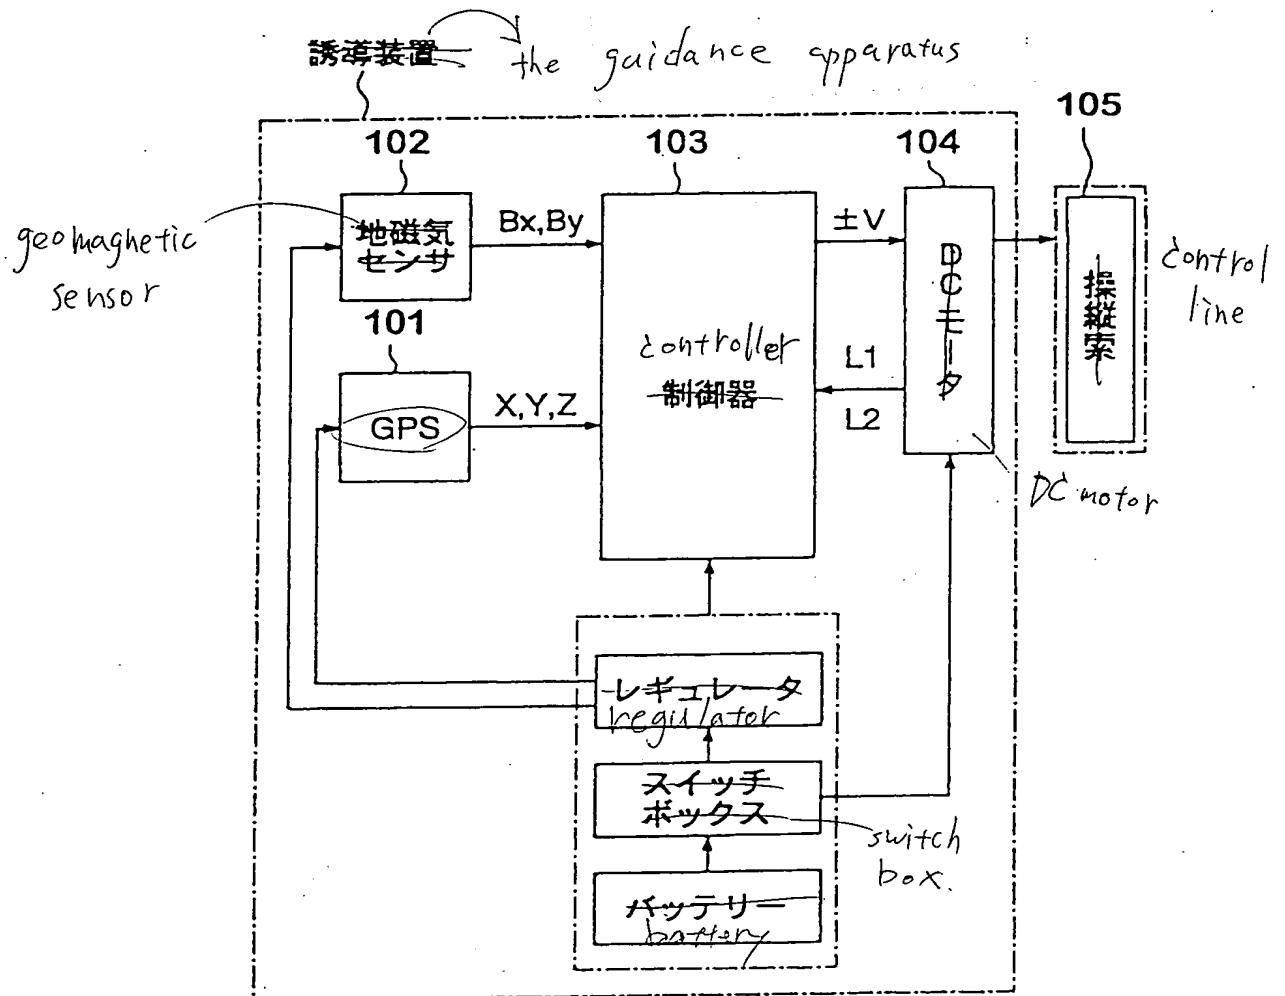 誘導装置
the guidance apparatus
105
102
103
104
geomagnetic
sensor
地磁気
センサ
Bx,By
±V
DCモータ
操縦索
control
line
101
controller
制御器
L1
L2
GPS
X,Y,Z
DC motor
レギュレータ
regulator
スイッチ
ボックス
switch
box.
バッテリー
battery